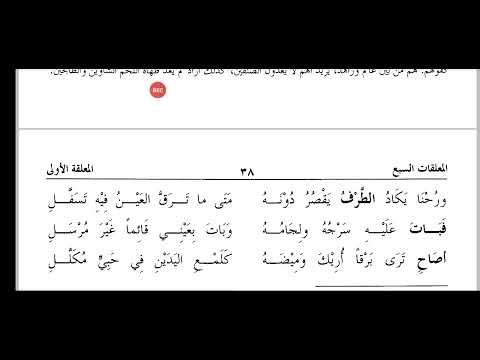 كفوهم. هم من بين عام وزاهد، يريد أنهم لا يعدون الصنفين، كذلك أراد لم يعد طهاة اللحم الشاوين والطابخين.
REC
المعلقات السبع ٣٨ المعلقة الأولى
ورُحْنَا يَكَادُ الطَّرْفُ يَقْصُرُ دُونَـهُ مَتَى ما تَـرَقَّ العَيْـنُ فِيْهِ تَسَفَّـلِ
فَبَـاتَ عَلَيْـهِ سَرْجُهُ ولِجَامُـهُ وَبَاتَ بِعَيْنِـي قَائِمـاً غَيْرَ مُرْسَـلِ
أصَاحِ تَرَى بَرْقاً أُرِيْكَ وَمِيْضَـهُ كَلَمْـعِ اليَدَيْـنِ فِي حَبِيٍّ مُكَلَّـلِ